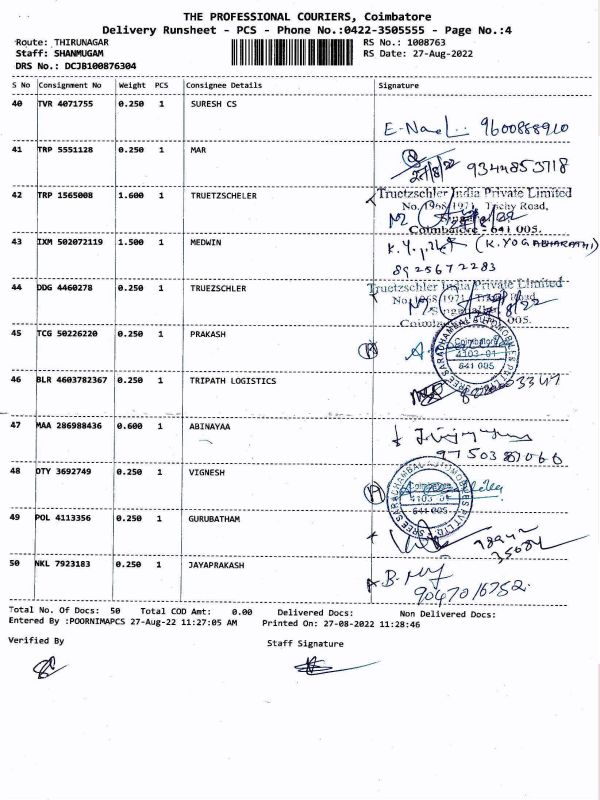 THE PROFESSIONAL COURIERS, Coimbatore
Delivery Runsheet - PCS - Phone No.:0422-3505555 - Page No.:4
Route: THIRUNAGAR
RS No.: 1008763
Staff: SHANMUGAM
RS Date: 27-Aug-2022
DRS No.: DCJB100876304
S No Consignment No Weight PCS Consignee Details Signature
40 TVR 4071755 0.250 1 SURESH CS
9600888910
41 TRP 5551128 0.250 1 MAR
27/8/22 9344853718
42 TRP 1565008 1.600 1 TRUETZSCHELER
Truetzschler India Private Limited
No. 1968/1971, Trichy Road,
Coimbatore - 641 005.
43 IXM 502072119 1.500 1 MEDWIN
(K.YOGABHARATHI)
8925672283
44 DDG 4460278 0.250 1 TRUEZSCHLER
Truetzschler India Private Limited
No. 1968/1971, Trichy Road,
Singanallur,
Coimbatore - 641 005.
45 TCG 50226220 0.250 1 PRAKASH
SREE SARADHAMBAL AUTOMOBILES PVT LTD
Coimbatore
641 005
46 BLR 4603782367 0.250 1 TRIPATH LOGISTICS
47 MAA 286988436 0.600 1 ABINAYAA
9750387066
48 OTY 3692749 0.250 1 VIGNESH
SREE SARADHAMBAL AUTOMOBILES PVT LTD
Coimbatore
641 005
49 POL 4113356 0.250 1 GURUBATHAM
50 NKL 7923183 0.250 1 JAYAPRAKASH
9047016752
Total No. Of Docs: 50 Total COD Amt: 0.00 Delivered Docs: Non Delivered Docs:
Entered By :POORNIMAPCS 27-Aug-22 11:27:05 AM Printed On: 27-08-2022 11:28:46
Verified By Staff Signature